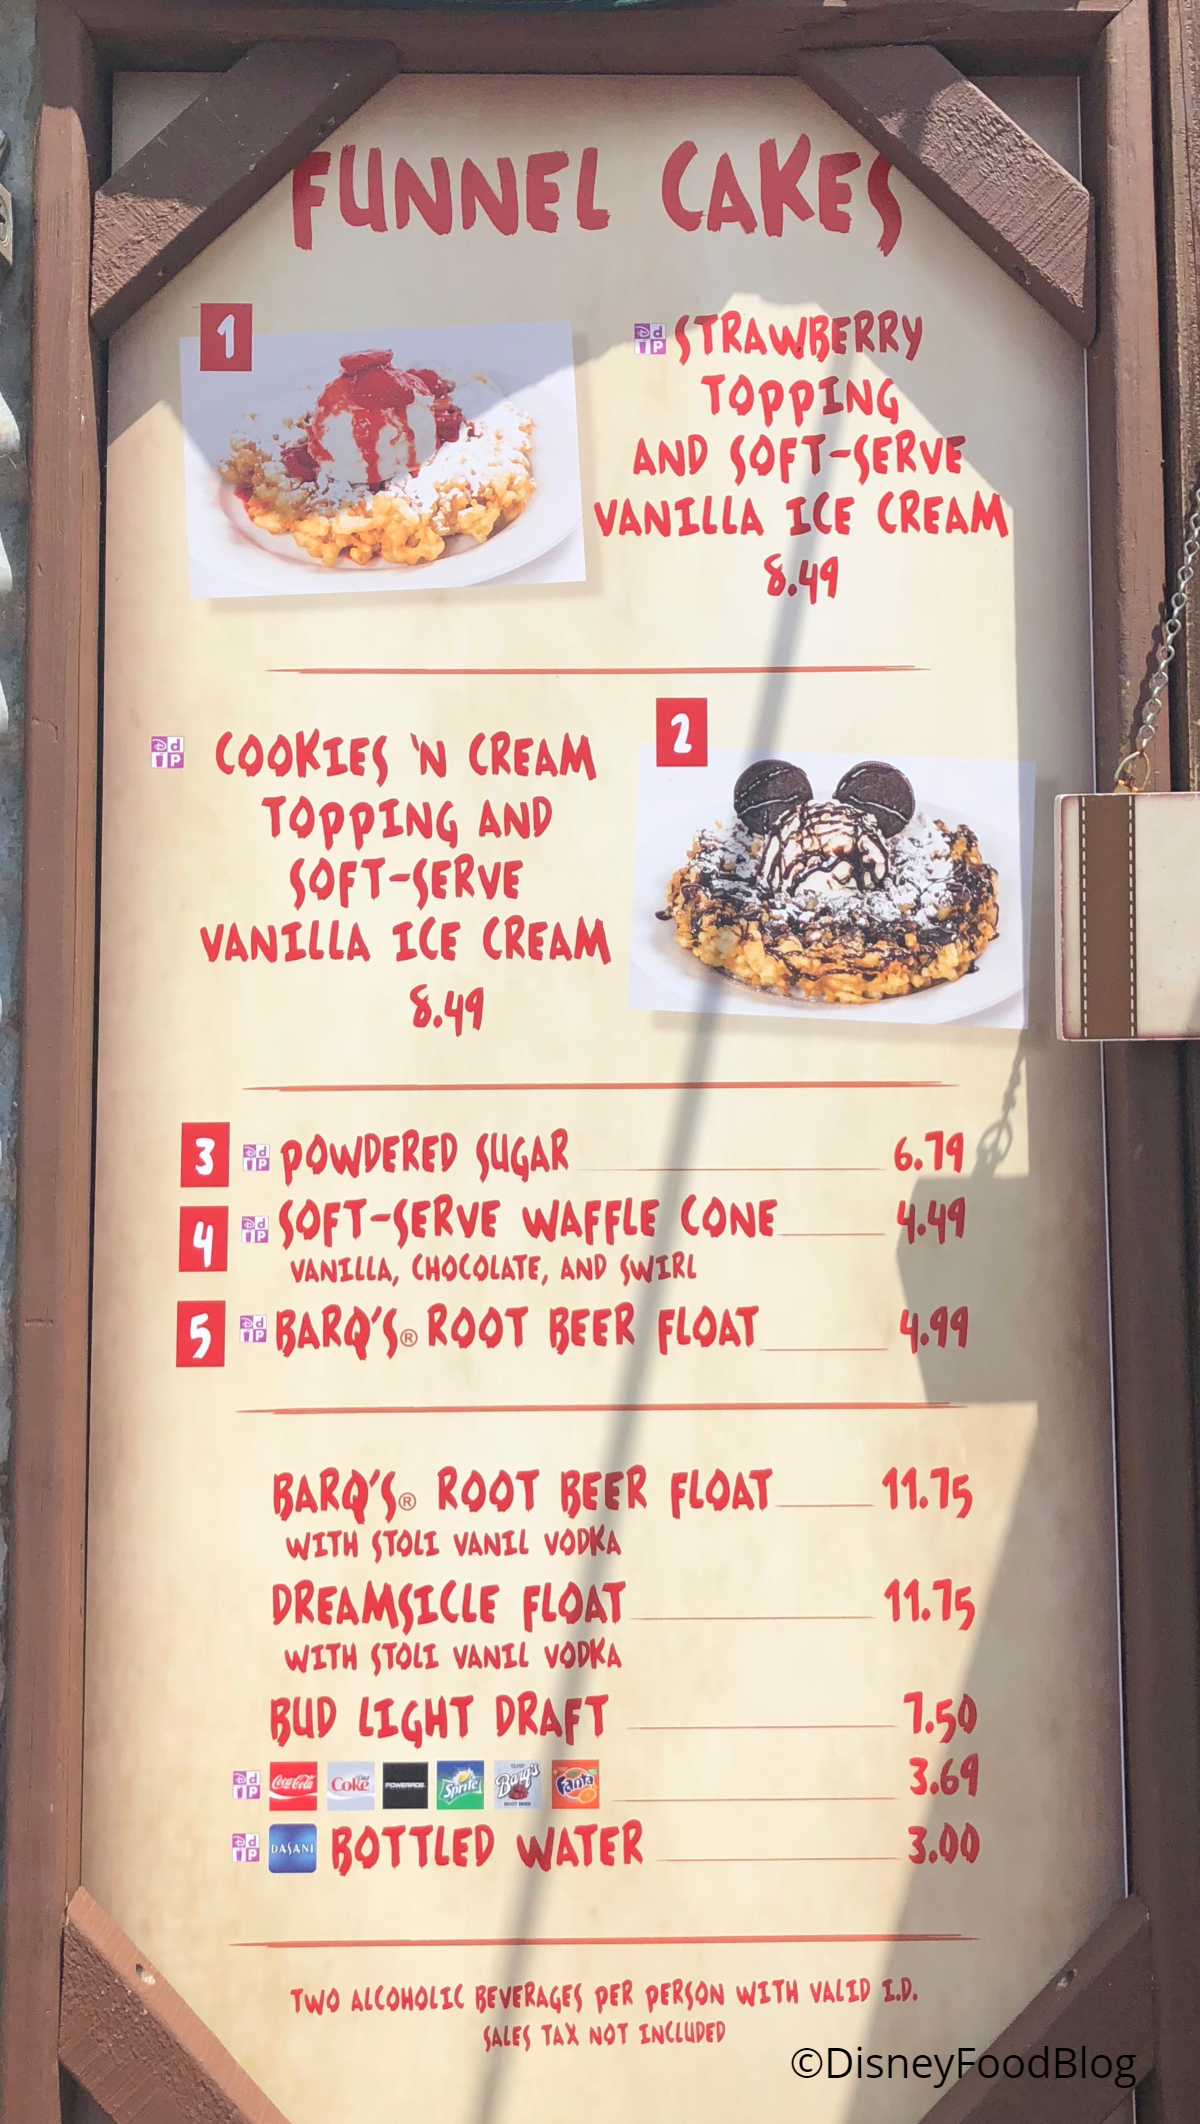 FUNNEL CAKES
1
STRAWBERRY
TOPPING
AND SOFT-SERVE
VANILLA ICE CREAM
8.49
2
COOKIES 'N CREAM
TOPPING AND
SOFT-SERVE
VANILLA ICE CREAM
8.49
3 POWDERED SUGAR 6.79
4 SOFT-SERVE WAFFLE CONE 4.49
VANILLA, CHOCOLATE, AND SWIRL
5 BARQ'S® ROOT BEER FLOAT 4.99
BARQ'S® ROOT BEER FLOAT 11.75
WITH STOLI VANIL VODKA
DREAMSICLE FLOAT 11.75
WITH STOLI VANIL VODKA
BUD LIGHT DRAFT 7.50
Coca-Cola Diet Coke POWERADE Sprite Barq's ROOT BEER Fanta 3.69
DASANI BOTTLED WATER 3.00
TWO ALCOHOLIC BEVERAGES PER PERSON WITH VALID I.D.
SALES TAX NOT INCLUDED
©DisneyFoodBlog